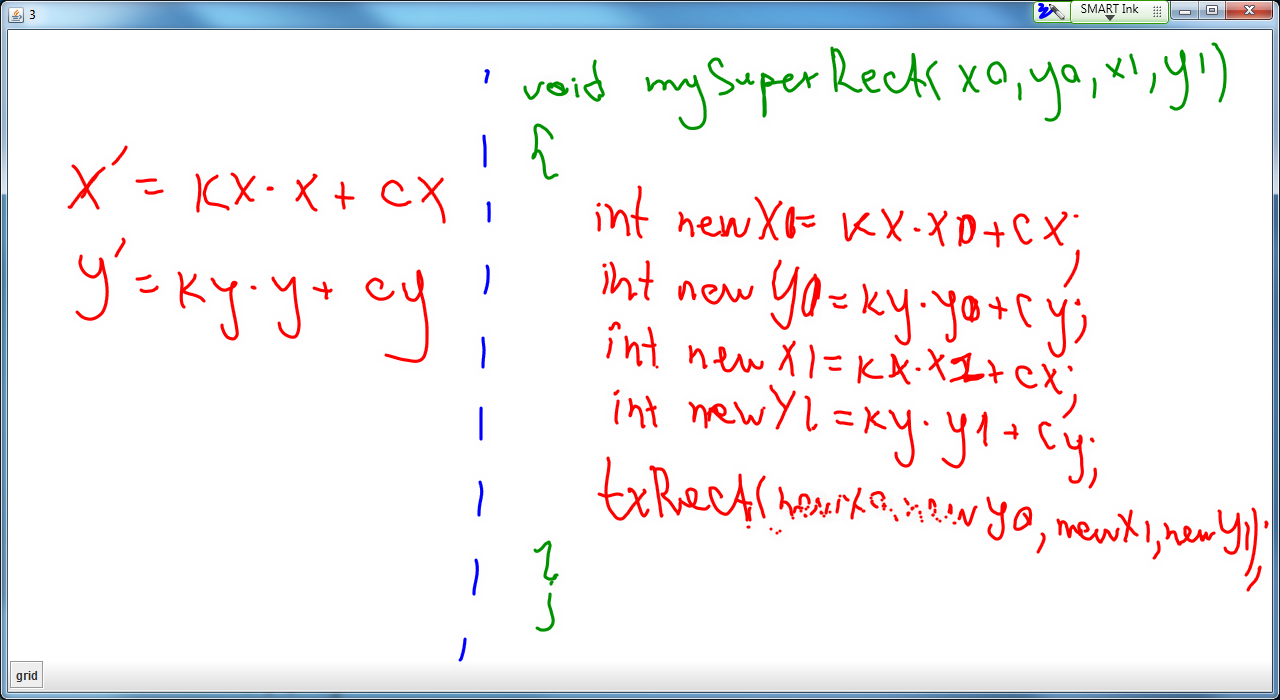 3
SMART Ink
x' = kx · x + cx
y' = ky · y + cy
void mySuperRect(x0, y0, x1, y1)
{
int newX0 = kx · x0 + cx;
int newY0 = ky · y0 + cy;
int newX1 = kx · x1 + cx;
int newY1 = ky · y1 + cy;
txRect(newX0, newY0, newX1, newY1);
}
grid